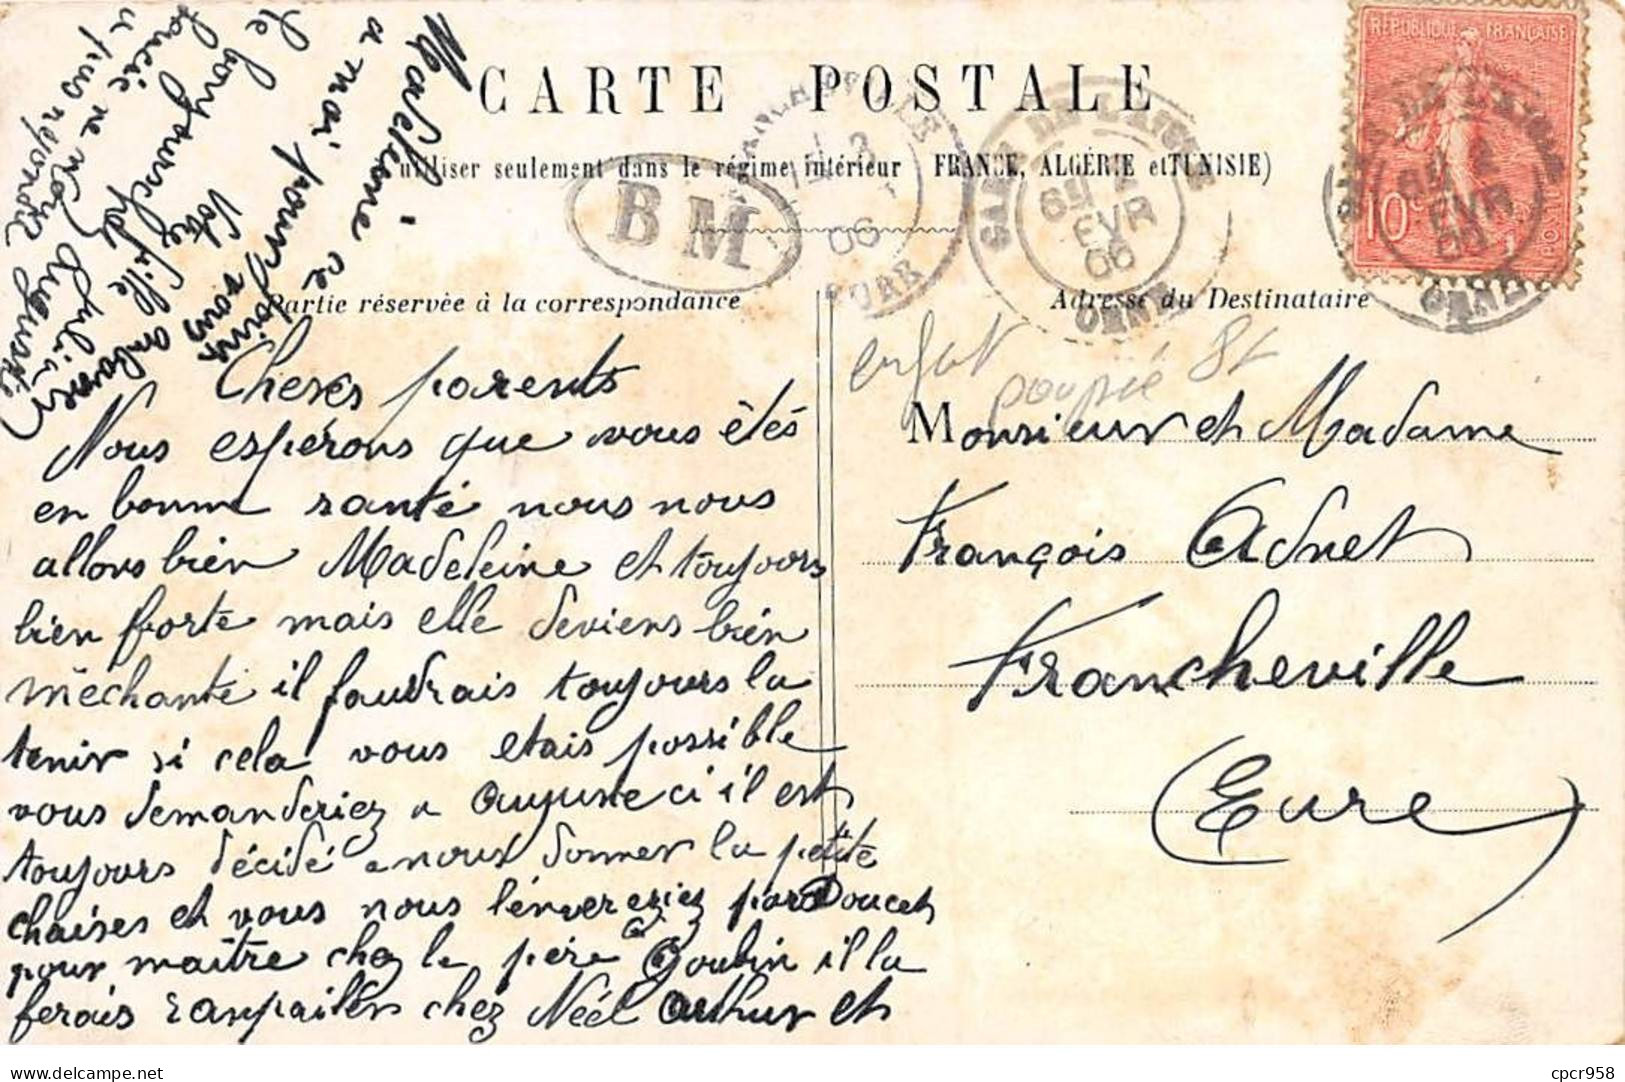 CARTE POSTALE
utiliser seulement dans le régime intérieur FRANCE, ALGÉRIE et TUNISIE)
RÉPUBLIQUE FRANÇAISE
10
BM
06
EURE
GARE DE L'AIGLE
EVR
06
ORNE
Partie réservée à la correspondance
Adresse du Destinataire
enfant
poupée 8t
Chères parents
Nous espérons que vous étés
en bonne santé nous nous
allons bien Madeleine et toujours
bien forte mais elle deviens bien
méchante il faudrais toujours la
tenir si cela vous etais possible
vous demanderiez a Auguste ci il est
toujours décidé a nous donner la petite
chaises et vous nous l'énvereziez par Doucet
pour maitre chez le père Goubin il la
ferais ranpailler chez Néel Arthur et
Madeleine ce
a moi pour
vous
Votre fille
Julia
le bonjour de
Lucie ne
a pas
Monsieur et Madame
François Adnet
Francheville
(Eure)
cpcr958